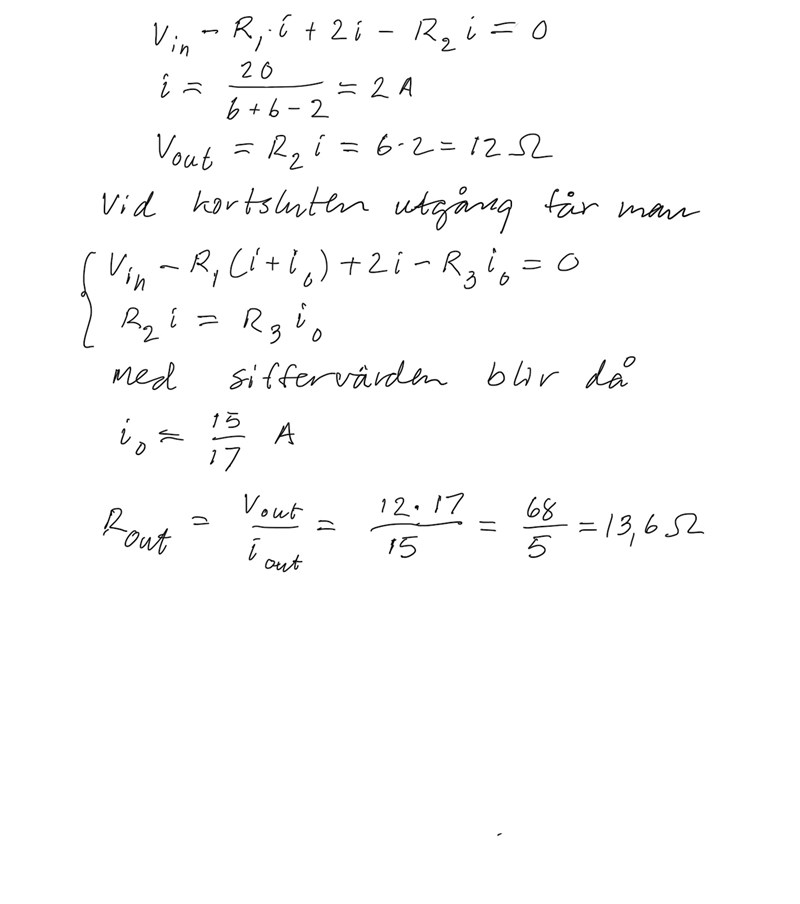 V_in - R_1·i + 2i - R_2 i = 0
i = 20/(6+6-2) = 2 A
V_out = R_2 i = 6·2 = 12 Ω
Vid kortsluten utgång får man
{ V_in - R_1(i+i_0) + 2i - R_3 i_0 = 0
R_2 i = R_3 i_0
med siffervärden blir då
i_0 = 15/17 A
R_out = V_out/i_out = 12·17/15 = 68/5 = 13,6 Ω